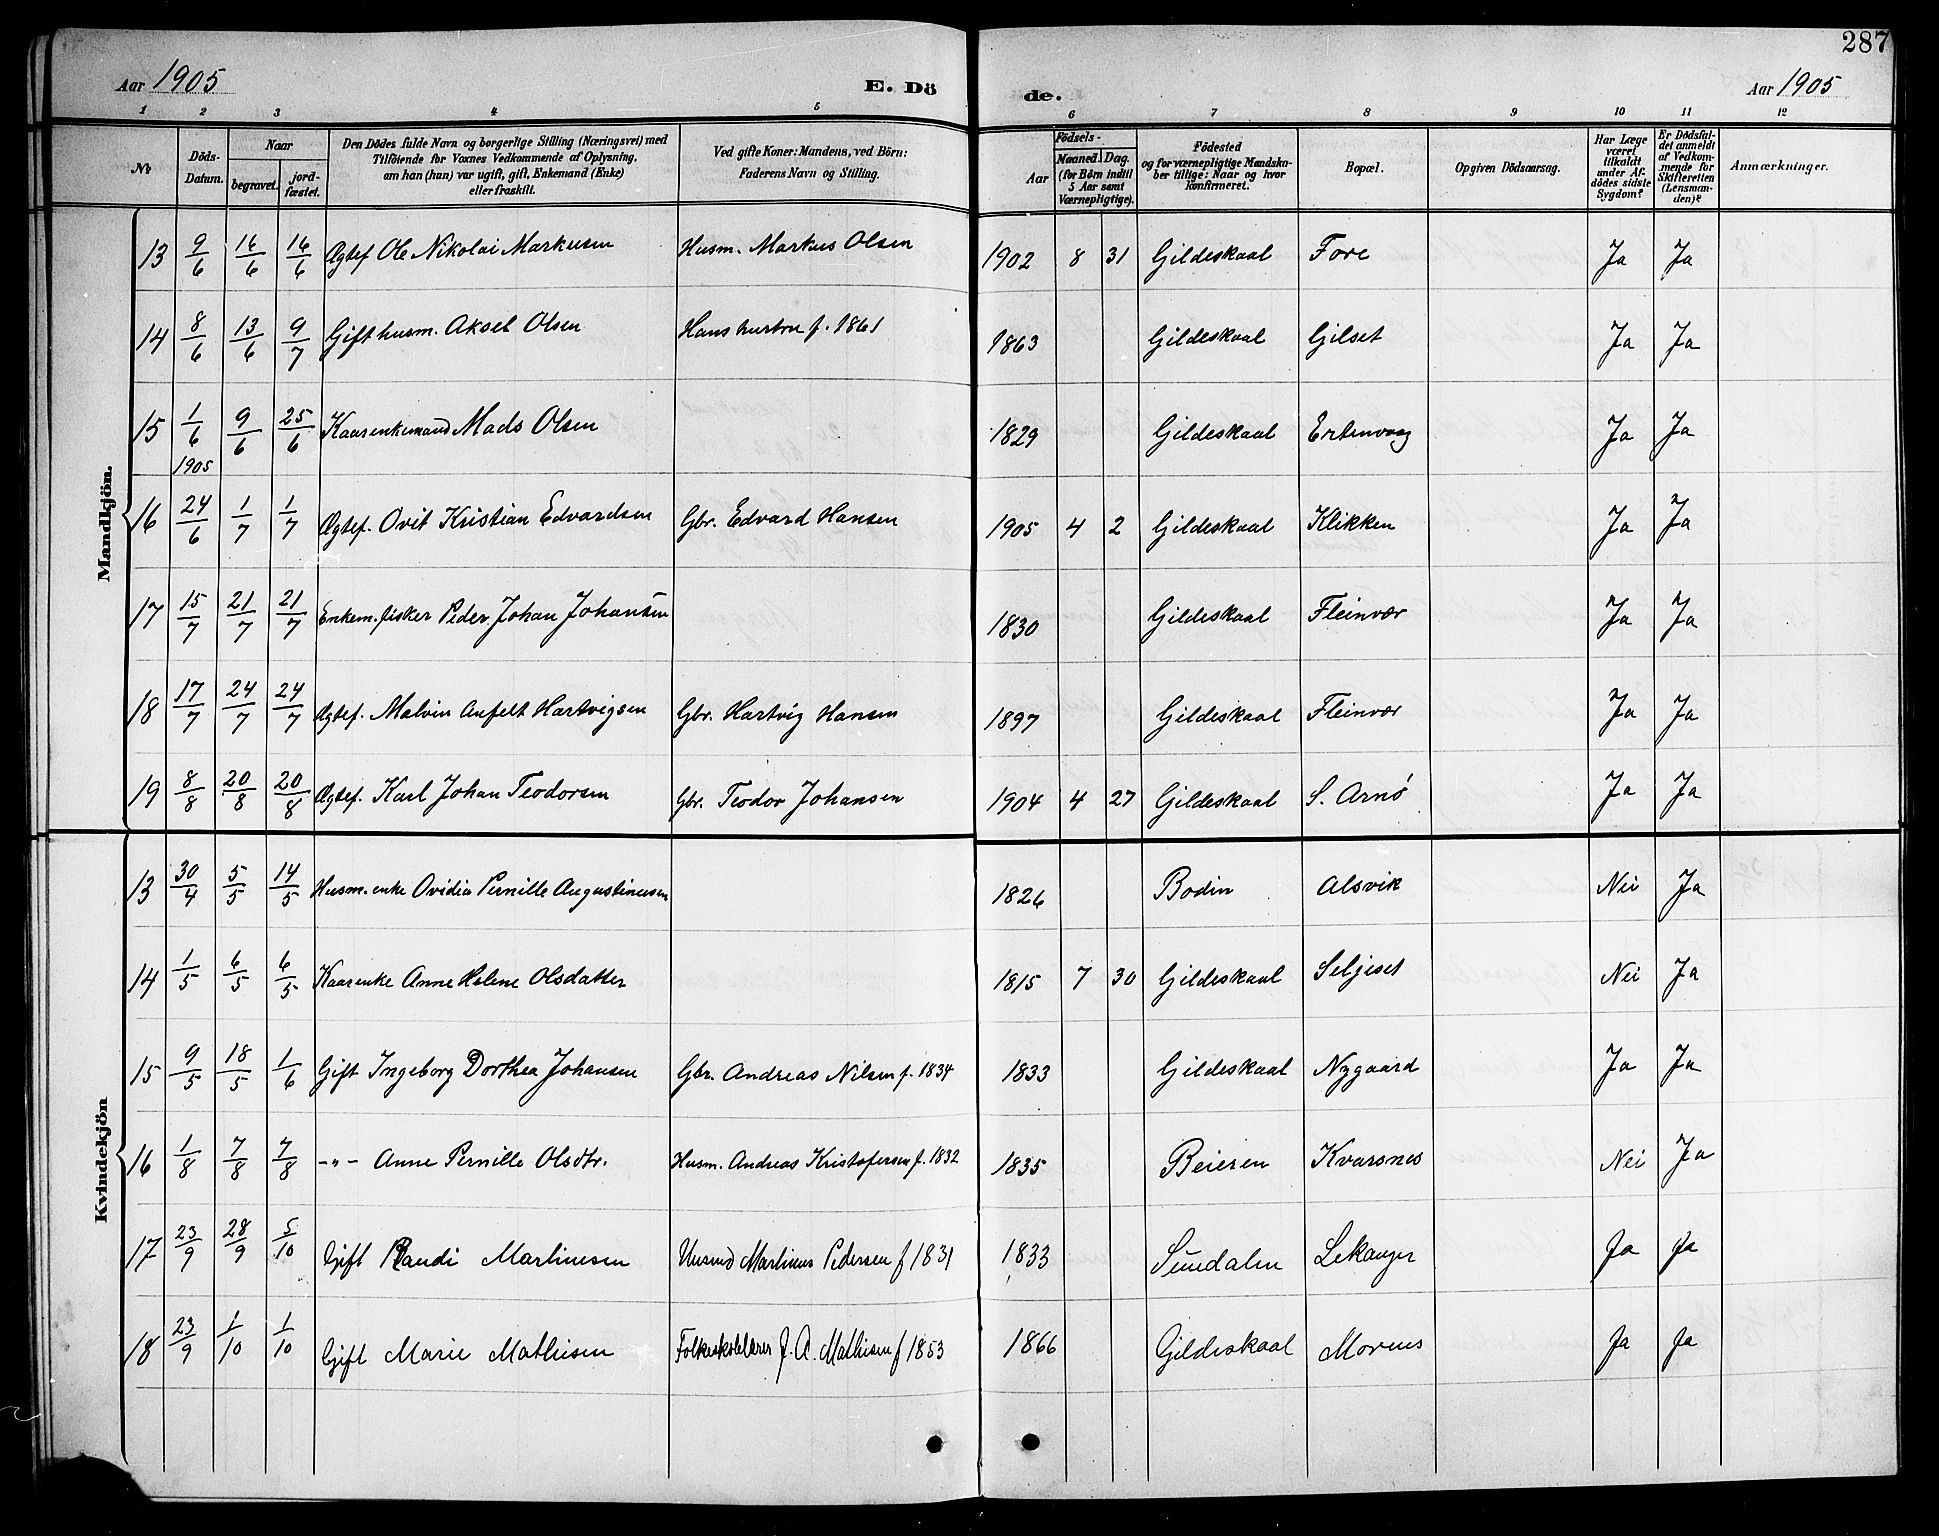 287
Aar 1905 E. Dö de. Aar 1905
1 2 3 4 5 6 7 8 9 10 11 12
Nr.
Döds-Datum.
Naar
begravet.
jord-fæstet.
Den Dödes fulde Navn og borgerlige Stilling (Næringsvei) med
Tilföiende for Voxnes Vedkommende af Oplysning,
om han (hun) var ugift, gift, Enkemand (Enke)
eller fraskilt.
Ved gifte Koner: Mandens, ved Börn:
Faderens Navn og Stilling.
Födsels-
Aar
Maaned. Dag.
(for Börn indtil
5 Aar samt
Værnepligtige).
Födested
og for værnepligtige Mandska-
ber tillige: Naar og hvor
konfirmeret.
Bopæl.
Opgiven Dödsaarsag.
Har Læge
været
tilkaldt
under Af-
dödes sidste
Sygdom?
Er Dödsfal-
det anmeldt
af Vedkom-
mende for
Skifteretten
(Lensman-
den)?
Anmærkninger.
Mandkjön.
13 9/6 16/6 16/6 Ægtef. Ole Nikolai Markusen Husm. Markus Olsen 1902 8 31 Gildeskaal Fore Ja Ja
14 8/6 13/6 9/7 Gift husm. Aksel Olsen Hans hustru f. 1861 1863 Gildeskaal Gilset Ja Ja
15 1/6 1905 9/6 25/6 Kaarenkemand Mads Olsen 1829 Gildeskaal Ertenvaag Ja Ja
16 24/6 1/7 1/7 Ægtef. Ovit Kristian Edvardsen Gbr. Edvard Hansen 1905 4 2 Gildeskaal Klikken Ja Ja
17 15/7 21/7 21/7 Enkem. fisker Peder Johan Johansen 1830 Gildeskaal Fleinvær Ja Ja
18 17/7 24/7 24/7 Ægtef. Malvin Anfelt Hartvigsen Gbr. Hartvig Hansen 1897 Gildeskaal Fleinvær Ja Ja
19 8/8 20/8 20/8 Ægtef. Karl Johan Teodorsen Gbr. Teodor Johansen 1904 4 27 Gildeskaal S. Arnö Ja Ja
Kvindekjön
13 30/4 5/5 14/5 Husm. enke Ovidia Pernille Augustinusen 1826 Bodin Alsvik Nei Ja
14 1/5 6/5 6/5 Kaarenke Anne Helene Olsdatter 1815 7 30 Gildeskaal Seljeset Nei Ja
15 9/5 18/5 1/6 Gift Ingeborg Dorthea Johansen Gbr. Andreas Nilsen f. 1834 1833 Gildeskaal Nygaard Ja Ja
16 1/8 7/8 7/8 -"- Anne Pernille Olsdtr. Husm. Andreas Kristofersen f. 1832 1835 Beieren Kvarsnes Nei Ja
17 23/9 28/9 5/10 Gift Randi Martinusen Husmd Martinus Pedersen f 1831 1833 Sundalen Lekanger Ja Ja
18 23/9 1/10 1/10 Gift Marie Mathisen Folkeskolelærer J. A. Mathisen f 1853 1866 Gildeskaal Mornes Ja Ja